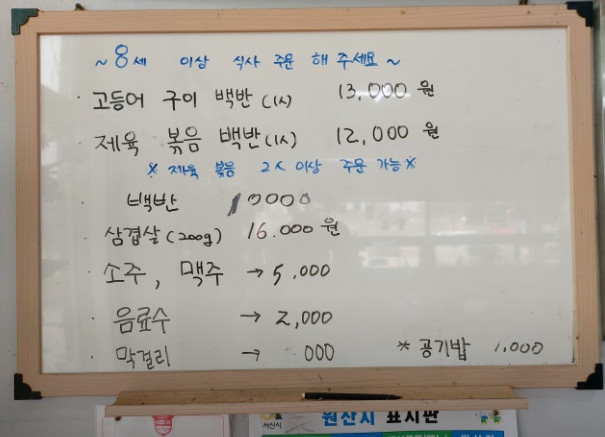 ~ 8세 이상 식사 주문 해 주세요 ~
· 고등어 구이 백반 (1人) 13,000 원
· 제육 볶음 백반 (1人) 12,000 원
※ 제육 볶음 2人 이상 주문 가능 ※
백반 10000
· 삼겹살 (200g) 16.000 원
· 소주, 맥주 → 5.000
· 음료수 → 2,000
· 막걸리 → 000 * 공기밥 1,000
서산시 원산지 표시판